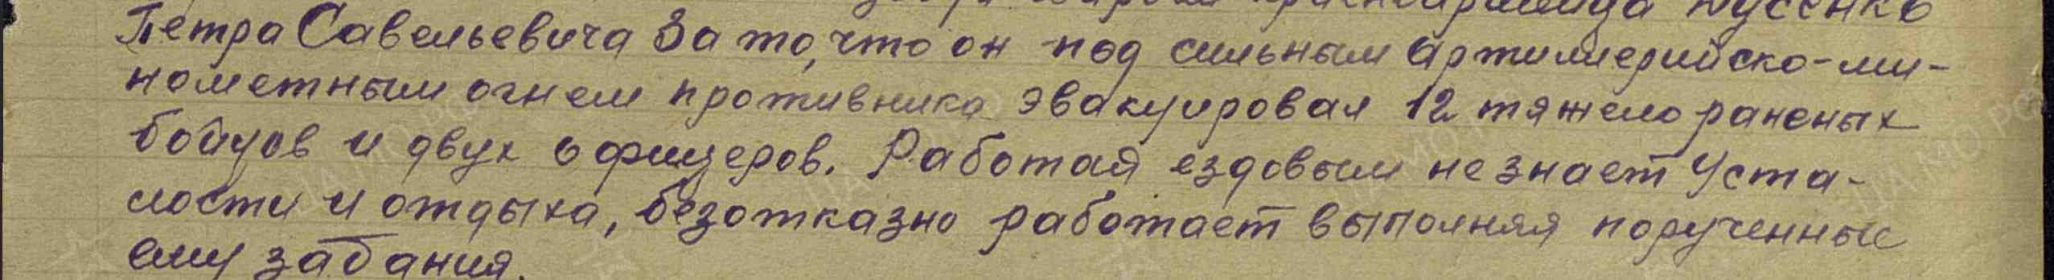 красноармейца Дусенко
Петра Савельевича За то, что он под сильным Артиллерийско-ми-
нометным огнем противника эвакуировал 12 тяжело раненых
бойцов и двух офицеров. Работая ездовым не знает Уста-
лости и отдыха, безотказно работает выполняя порученные
ему задания.